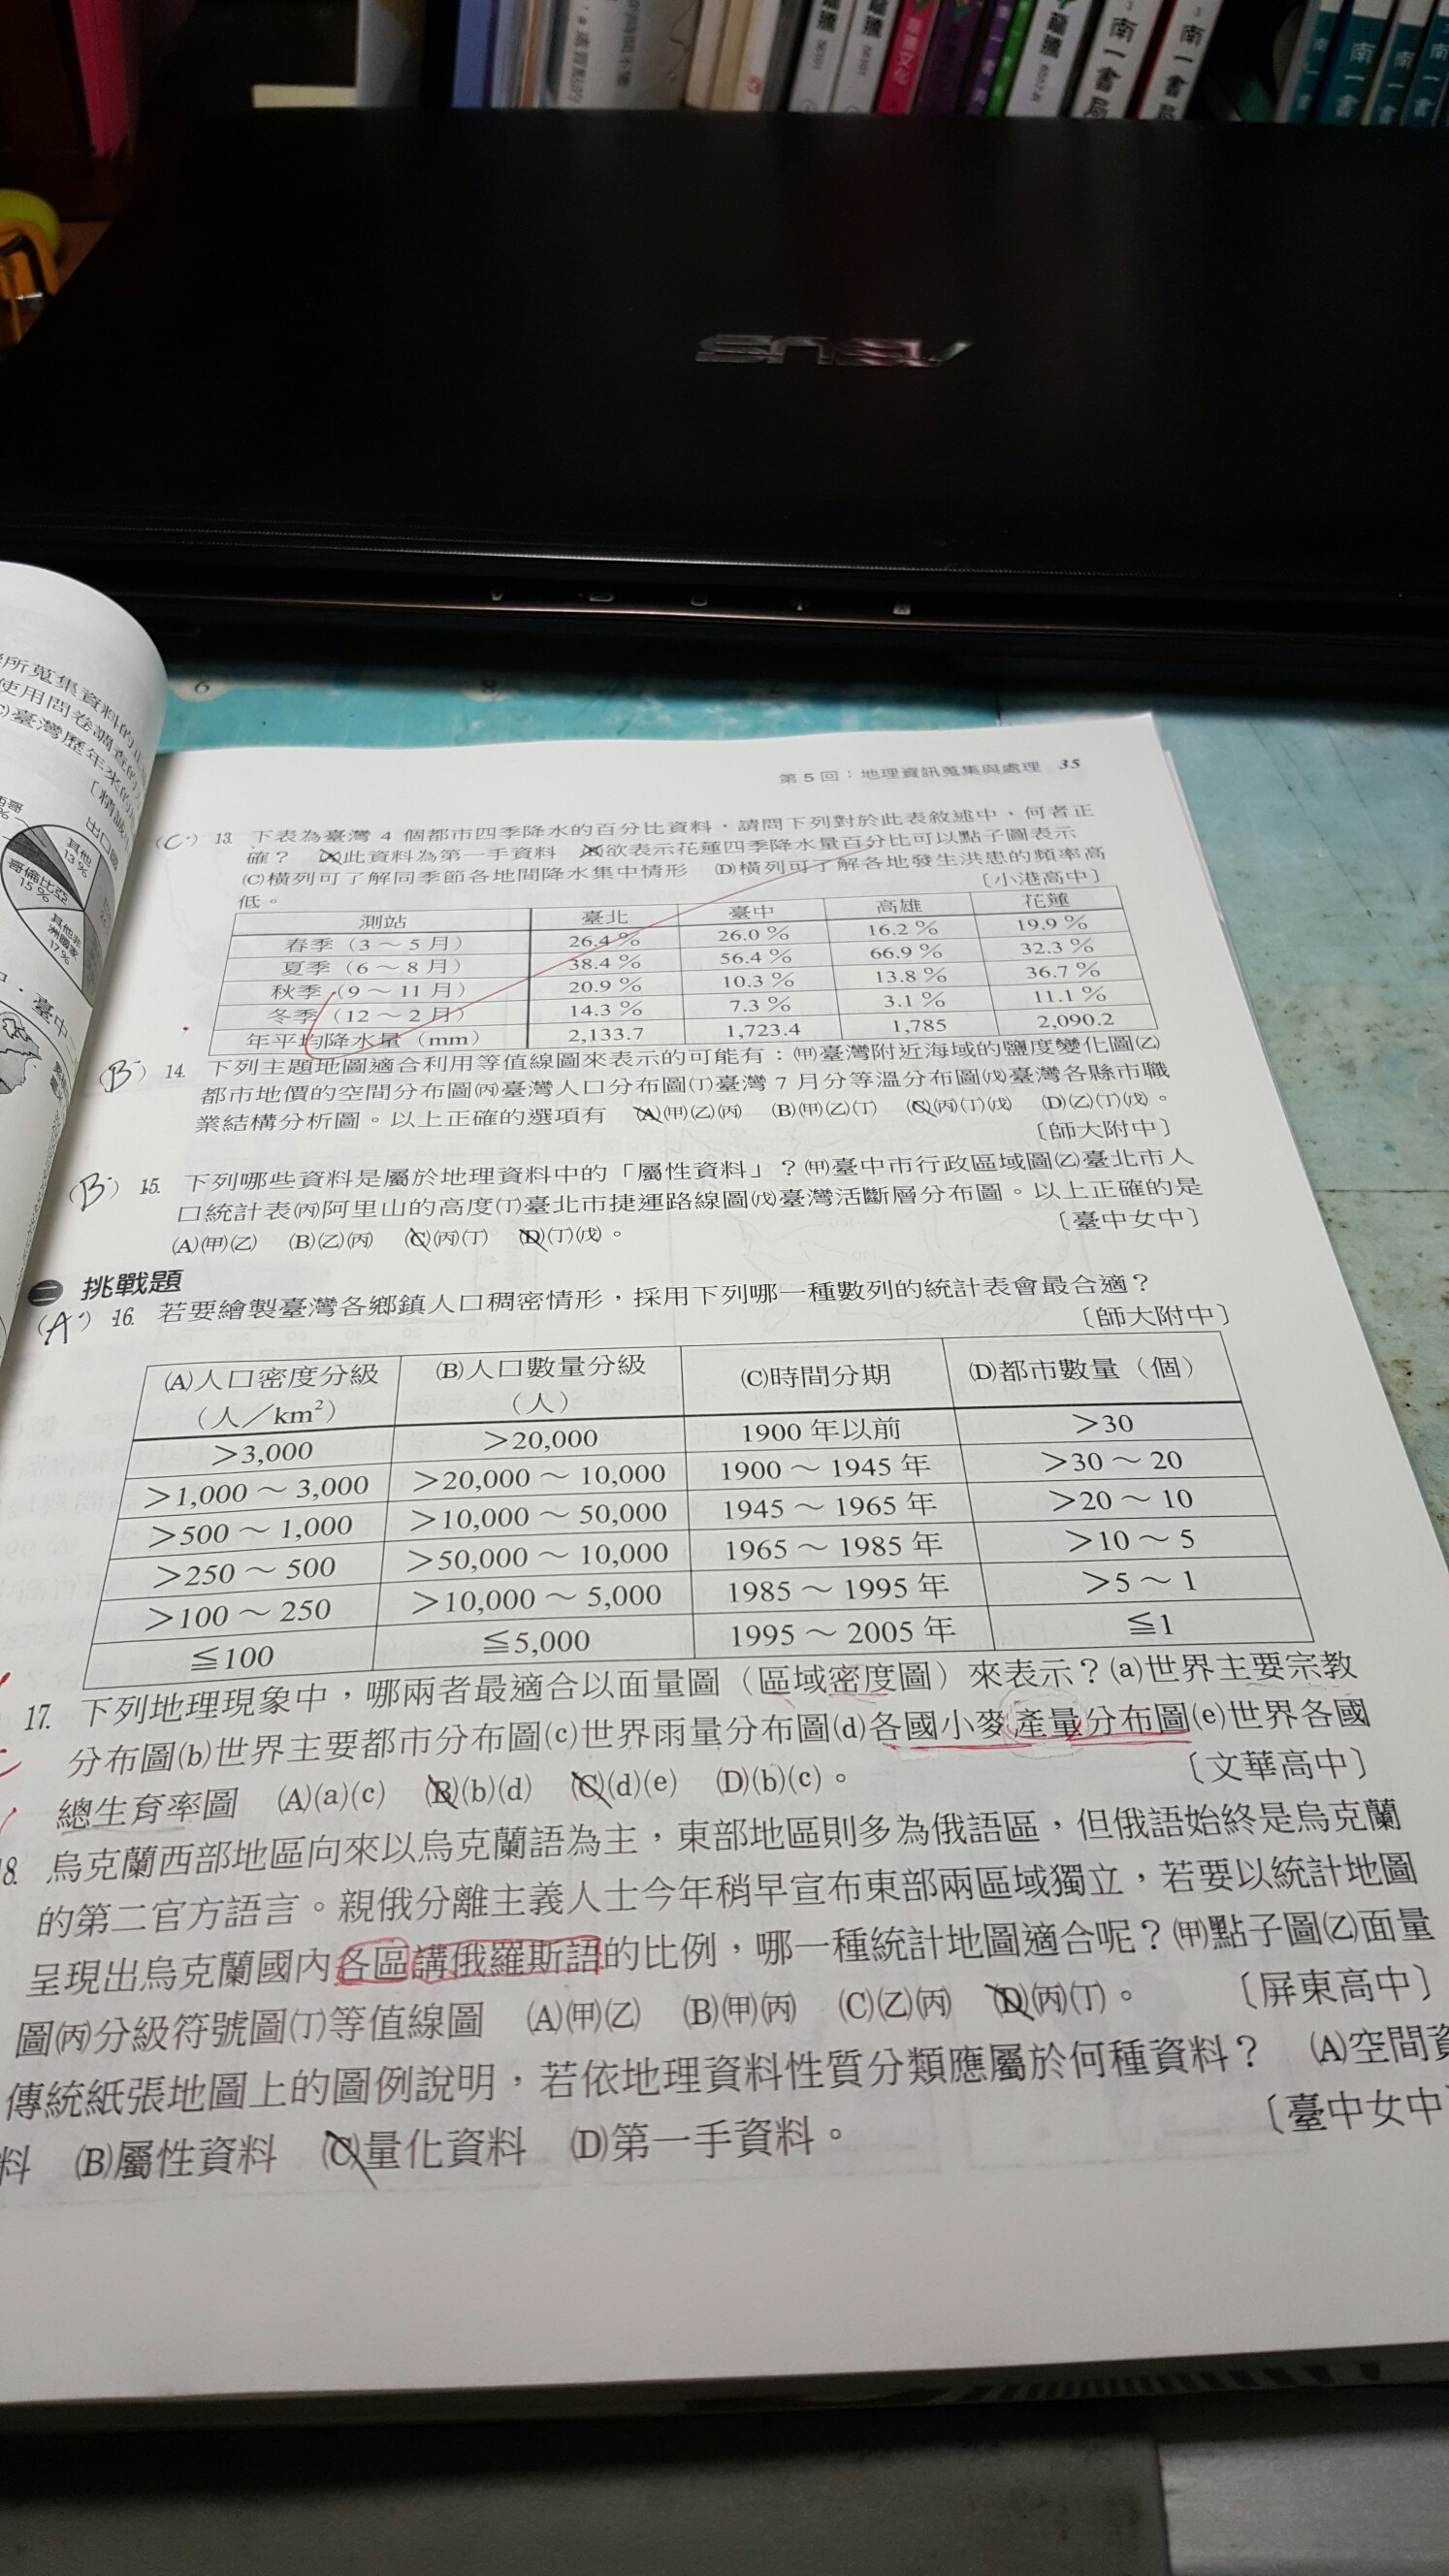 南一書局
南一書局
南一書
南一書
南一書
龍騰
龍騰
龍騰
ASUS
6
8
所蒐集資料的
使用問卷調查的
臺灣歷年來的
出口國
其他
13%
哥倫比亞
15%
其他非
洲國家
17%
第5回：地理資訊蒐集與處理 35
(C) 13. 下表為臺灣 4 個都市四季降水的百分比資料，請問下列對於此表敘述中，何者正
確？ (A)此資料為第一手資料 (B)欲表示花蓮四季降水量百分比可以點子圖表示
(C)橫列可了解同季節各地間降水集中情形 (D)橫列可了解各地發生洪患的頻率高
低。 〔小港高中〕
測站 臺北 臺中 高雄 花蓮
春季（3～5月） 26.4% 26.0% 16.2% 19.9%
夏季（6～8月） 38.4% 56.4% 66.9% 32.3%
秋季（9～11月） 20.9% 10.3% 13.8% 36.7%
冬季（12～2月） 14.3% 7.3% 3.1% 11.1%
年平均降水量（mm） 2,133.7 1,723.4 1,785 2,090.2
(B) 14. 下列主題地圖適合利用等值線圖來表示的可能有：(甲)臺灣附近海域的鹽度變化圖(乙)
都市地價的空間分布圖(丙)臺灣人口分布圖(丁)臺灣 7 月分等溫分布圖(戊)臺灣各縣市職
業結構分析圖。以上正確的選項有 (A)(甲)(乙)(丙) (B)(甲)(乙)(丁) (C)(丙)(丁)(戊) (D)(乙)(丁)(戊)。
〔師大附中〕
(B) 15. 下列哪些資料是屬於地理資料中的「屬性資料」？(甲)臺中市行政區域圖(乙)臺北市人
口統計表(丙)阿里山的高度(丁)臺北市捷運路線圖(戊)臺灣活斷層分布圖。以上正確的是
(A)(甲)(乙) (B)(乙)(丙) (C)(丙)(丁) (D)(丁)(戊)。 〔臺中女中〕
二 挑戰題
(A) 16. 若要繪製臺灣各鄉鎮人口稠密情形，採用下列哪一種數列的統計表會最合適？
〔師大附中〕
(A)人口密度分級（人／km²） (B)人口數量分級（人） (C)時間分期 (D)都市數量（個）
＞3,000 ＞20,000 1900 年以前 ＞30
＞1,000～3,000 ＞20,000～10,000 1900～1945 年 ＞30～20
＞500～1,000 ＞10,000～50,000 1945～1965 年 ＞20～10
＞250～500 ＞50,000～10,000 1965～1985 年 ＞10～5
＞100～250 ＞10,000～5,000 1985～1995 年 ＞5～1
≦100 ≦5,000 1995～2005 年 ≦1
17. 下列地理現象中，哪兩者最適合以面量圖（區域密度圖）來表示？(a)世界主要宗教
分布圖(b)世界主要都市分布圖(c)世界雨量分布圖(d)各國小麥產量分布圖(e)世界各國
總生育率圖 (A)(a)(c) (B)(b)(d) (C)(d)(e) (D)(b)(c)。 〔文華高中〕
18. 烏克蘭西部地區向來以烏克蘭語為主，東部地區則多為俄語區，但俄語始終是烏克蘭
的第二官方語言。親俄分離主義人士今年稍早宣布東部兩區域獨立，若要以統計地圖
呈現出烏克蘭國內各區講俄羅斯語的比例，哪一種統計地圖適合呢？(甲)點子圖(乙)面量
圖(丙)分級符號圖(丁)等值線圖 (A)(甲)(乙) (B)(甲)(丙) (C)(乙)(丙) (D)(丙)(丁)。 〔屏東高中〕
傳統紙張地圖上的圖例說明，若依地理資料性質分類應屬於何種資料？ (A)空間資
料 (B)屬性資料 (C)量化資料 (D)第一手資料。 〔臺中女中